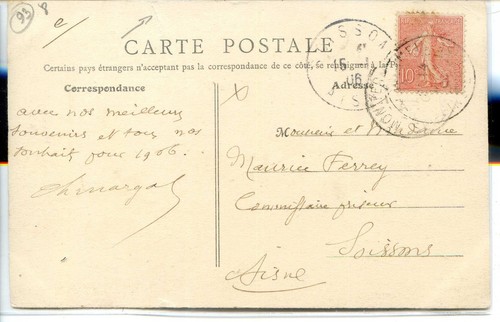 93 8
CARTE POSTALE
Certains pays étrangers n'acceptant pas la correspondance de ce côté, se renseigner à la
Correspondance
Adresse
10
5
06
avec nos meilleurs
souvenirs et tous nos
souhaits pour 1906.
Monsieur et Madame
Maurice Ferrey
Commissaire priseur
Soissons
Aisne